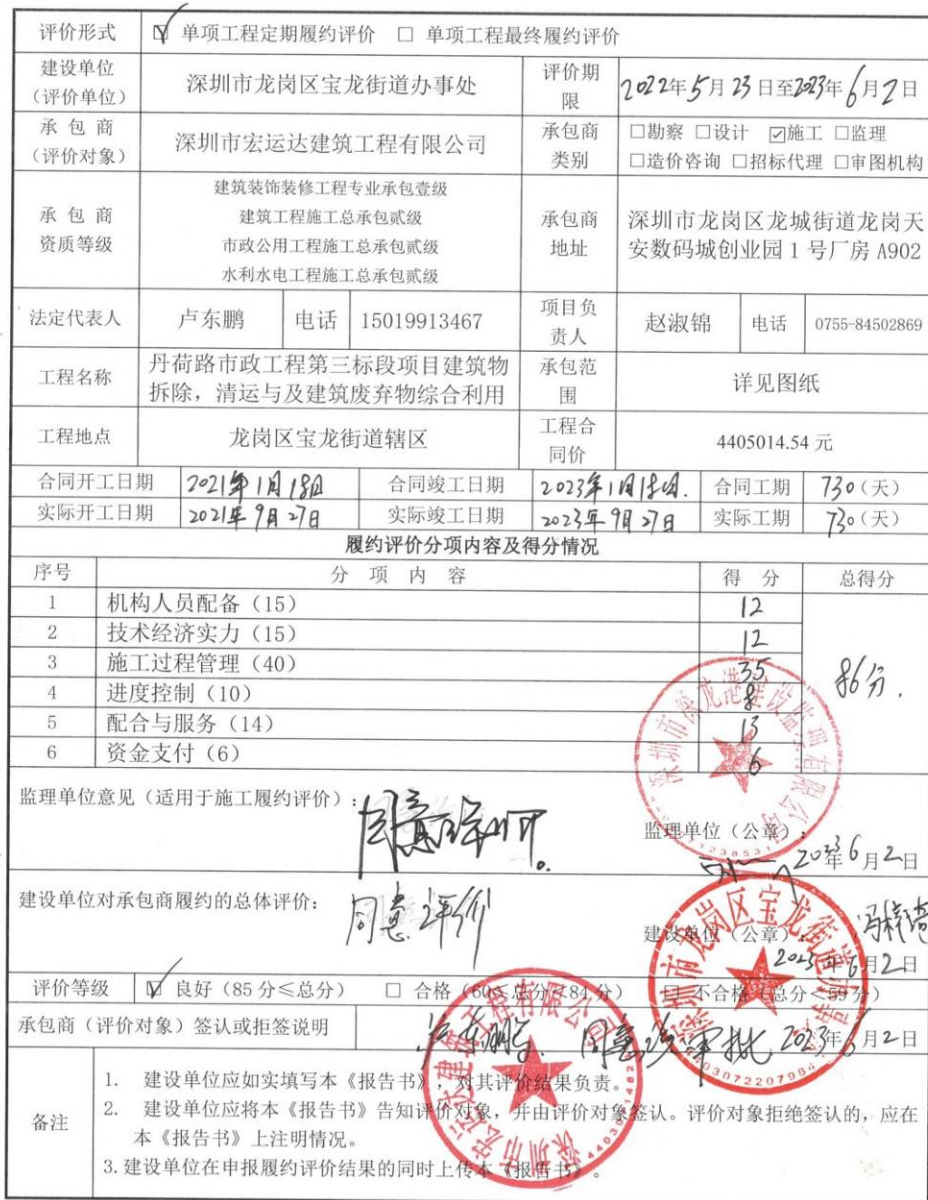 评价形式 ☑ 单项工程定期履约评价 □ 单项工程最终履约评价
建设单位（评价单位） 深圳市龙岗区宝龙街道办事处 评价期限 2022年5月23日至2023年6月2日
承包商（评价对象） 深圳市宏运达建筑工程有限公司 承包商类别 □勘察 □设计 ☑施工 □监理
□造价咨询 □招标代理 □审图机构
承包商资质等级 建筑装饰装修工程专业承包壹级
建筑工程施工总承包贰级
市政公用工程施工总承包贰级
水利水电工程施工总承包贰级
承包商地址 深圳市龙岗区龙城街道龙岗天
安数码城创业园1号厂房A902
法定代表人 卢东鹏 电话 15019913467 项目负责人 赵淑锦 电话 0755-84502869
工程名称 丹荷路市政工程第三标段项目建筑物
拆除，清运与及建筑废弃物综合利用
承包范围 详见图纸
工程地点 龙岗区宝龙街道辖区 工程合同价 4405014.54元
合同开工日期 2021年1月18日 合同竣工日期 2023年1月18日. 合同工期 730（天）
实际开工日期 2021年9月27日 实际竣工日期 2023年9月27日 实际工期 730（天）
履约评价分项内容及得分情况
序号 分项内容 得分 总得分
1 机构人员配备（15） 12
2 技术经济实力（15） 12
3 施工过程管理（40） 35
4 进度控制（10） 8
5 配合与服务（14） 13
6 资金支付（6） 6
86分.
深圳市深龙港建设监理有限公司
监理单位意见（适用于施工履约评价）：
同意
监理单位（公章）：
2023年6月2日
建设单位对承包商履约的总体评价：
同意评价
建设单位（公章）：
2023年6月2日
评价等级 ☑ 良好（85分≤总分） □ 合格（60≤总分<84分） □ 不合格（总分<59分）
承包商（评价对象）签认或拒签说明 同意 审批 2023年6月2日
深圳市宏运达建筑工程有限公司
备注
1. 建设单位应如实填写本《报告书》，对其评价结果负责。
2. 建设单位应将本《报告书》告知评价对象，并由评价对象签认。评价对象拒绝签认的，应在
本《报告书》上注明情况。
3.建设单位在申报履约评价结果的同时上传本《报告书》。